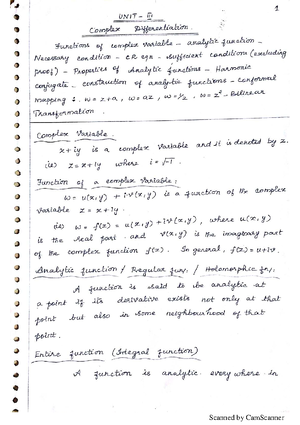 1
UNIT - III
Complex Differentiation.
Functions of complex variable - analytic function -
Necessary condition - CR eqn - sufficient conditions (excluding
proof) - Properties of Analytic functions - Harmonic
conjugate - construction of analytic functions - conformal
mapping : w = z+a, w = az, w = 1/z, w = z² - Bilinear
Transformation.
Complex Variable.
x+iy is a complex variable and it is denoted by z.
(ie) z = x+iy where i = √-1.
Function of a complex variable:
w = u(x,y) + i v(x,y) is a function of the complex
variable z = x+iy.
(ie) w = f(z) = u(x,y) + i v(x,y), where u(x,y)
is the real part and v(x,y) is the imaginary part
of the complex function f(z). In general, f(z) = u+iv.
Analytic function / Regular fun. / Holomorphic fn.
A function is said to be analytic at
a point if its derivative exists not only at that
point but also in some neighbourhood of that
point.
Entire function (Integral function)
A function is analytic everywhere in
Scanned by CamScanner